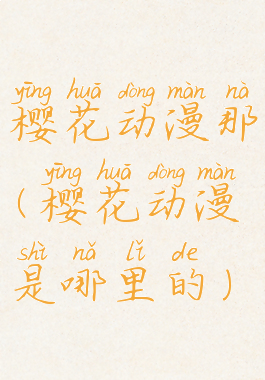 yīng huā dòng màn nà
樱花动漫那
yīng huā dòng màn
(樱花动漫
shì nǎ lǐ de
是哪里的)